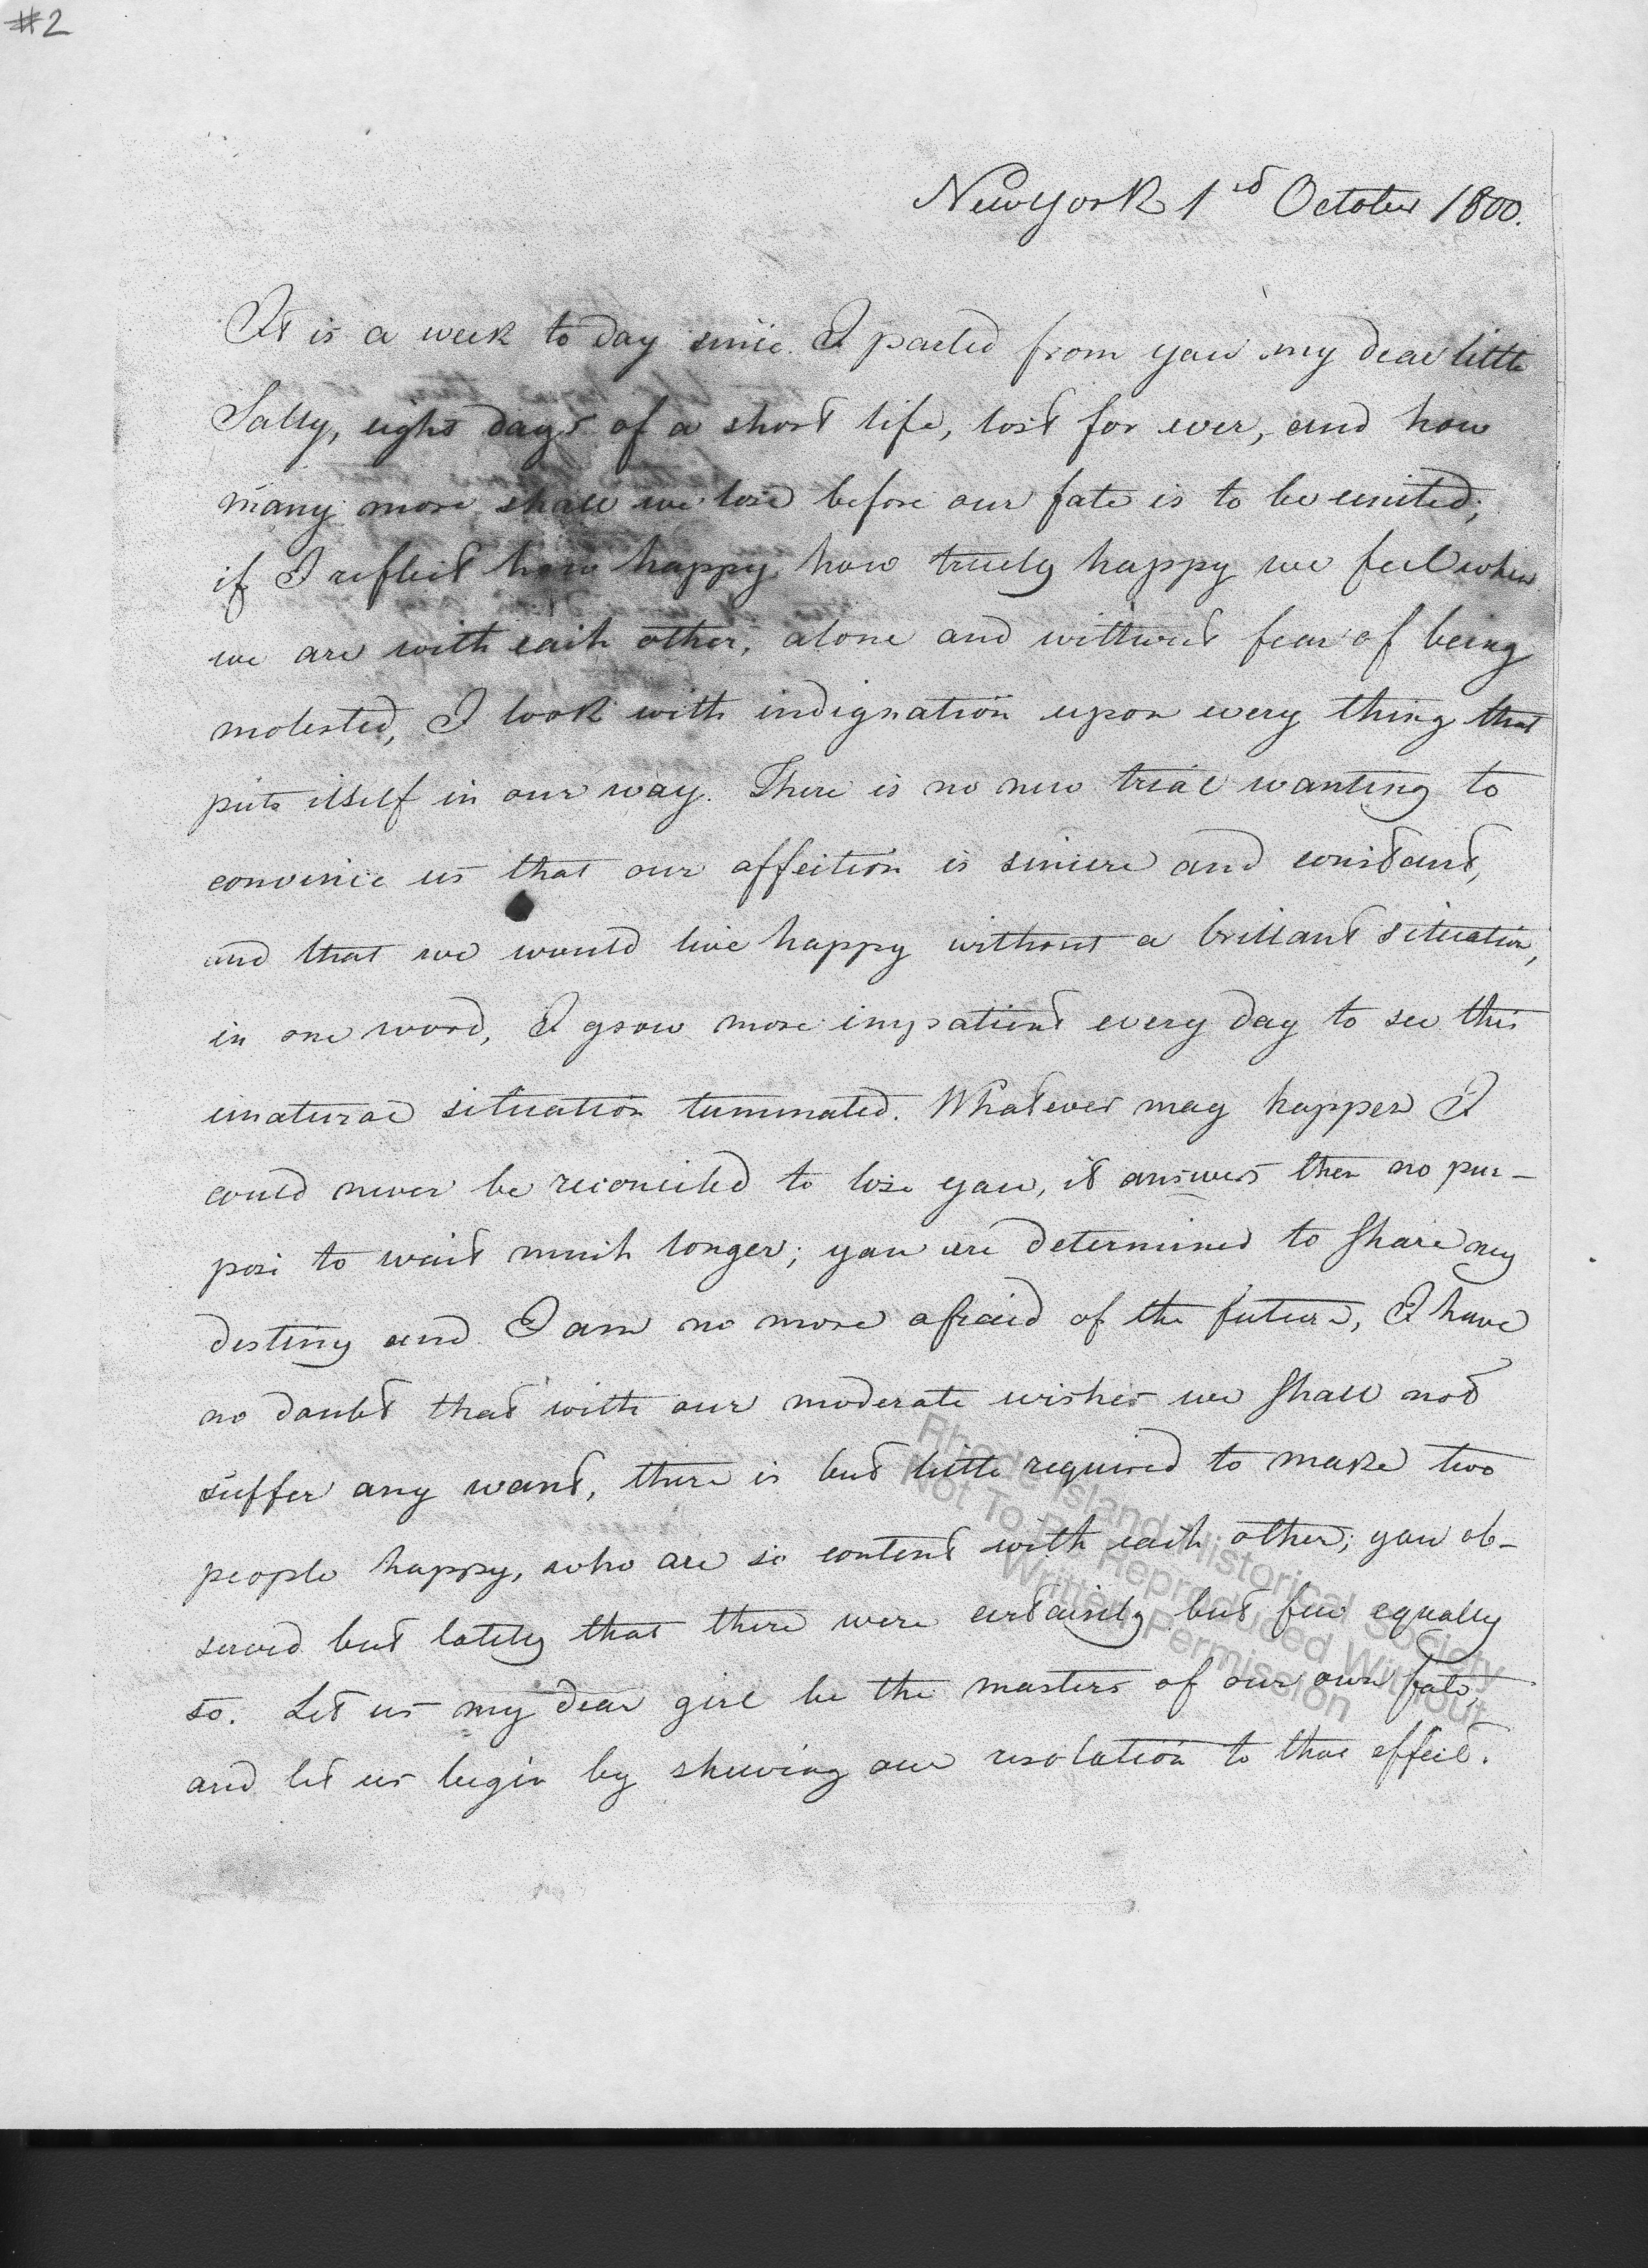 #2
New York 1st October 1800.
It is a week to day since I parted from you my dear little
Sally, eight days of a short life, lost for ever, and how
many more shall we lose before our fate is to be united;
if I reflect how happy, how truely happy we feel when
we are with each other, alone and without fear of being
molested, I look with indignation upon every thing that
puts itself in our way. There is no new trial wanting to
convince us that our affection is sincere and constant,
and that we would live happy without a brillant situation,
in one word, I grow more impatient every day to see this
unatural situation terminated. Whatever may happen I
could never be reconciled to lose you, it answers then no pur-
pose to wait much longer; you are determined to share my
destiny and I am no more afraid of the future, I have
no doubt that with our moderate wishes we shall not
suffer any want, there is but little required to make two
people happy, who are so content with each other; you ob-
served but lately that there were certainly but few equally
so. Let us my dear girl be the masters of our own fate,
and let us begin by shewing our resolution to that effect.
Rhode Island Historical Society
Not To Be Reproduced Without
Written Permission